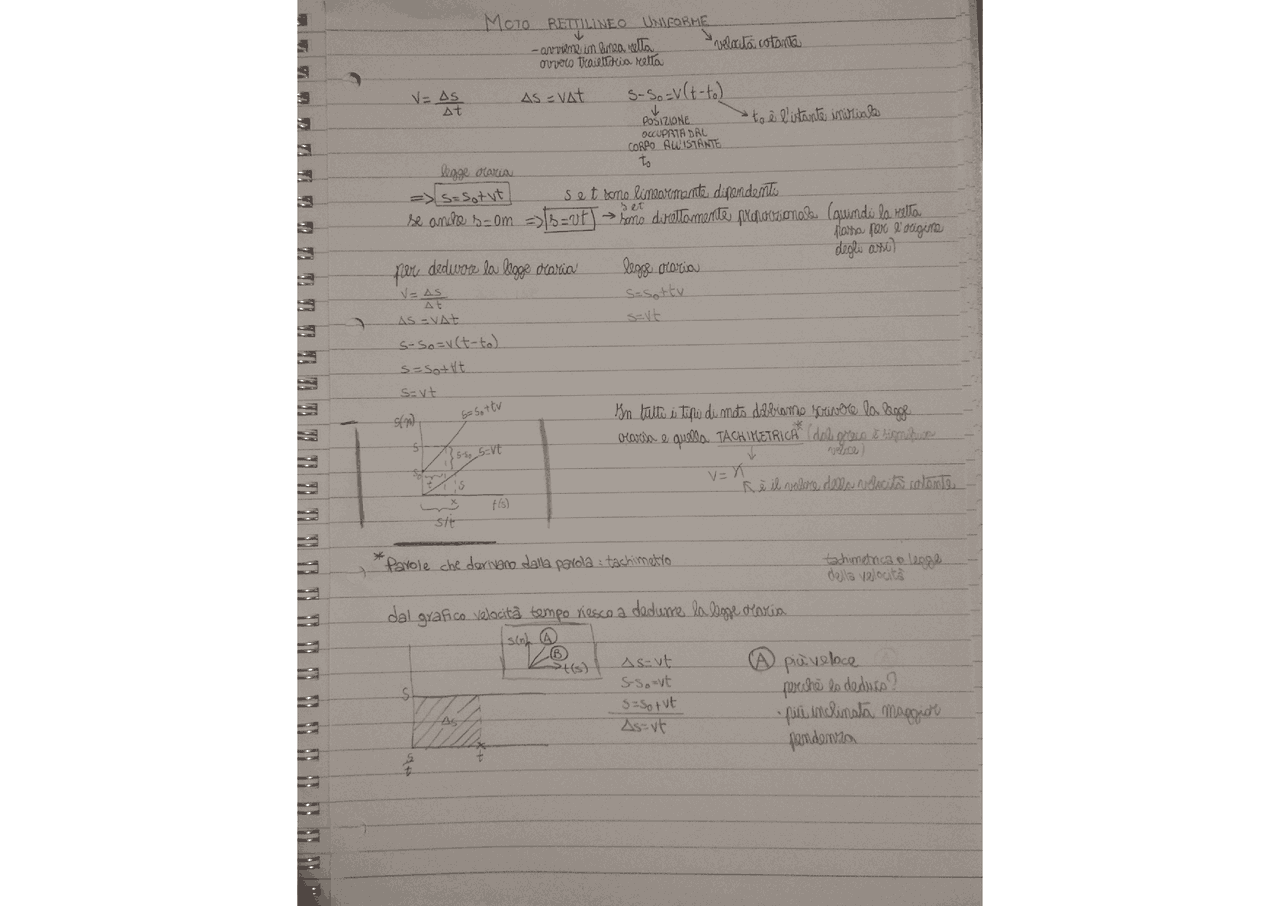 MOTO RETTILINEO UNIFORME
- avviene in linea retta
ovvero traiettoria retta
velocità costante
V = Δs/Δt Δs = VΔt s-s₀ = v(t-t₀)
t₀ è l'istante iniziale
POSIZIONE
OCCUPATA DAL
CORPO ALL'ISTANTE
t₀
legge oraria
=> s=s₀+vt s e t sono linearmente dipendenti
se anche s=0m => s=vt → s e t sono direttamente proporzionale (quindi la retta
passa per l'origine
degli assi)
per dedurre la legge oraria legge oraria
V = Δs/Δt s=s₀+tv
Δs = vΔt s=vt
s-s₀=v(t-t₀)
s = s₀+vt
s=vt
s(m) s=s₀+tv
s s-s₀ s=vt
s₀ t s
x t(s)
s/t
In tutti i tipo di moto dobbiamo scrivere la legge
oraria e quella TACHIMETRICA* (dal greco è significa
veloce)
V = n
è il valore della velocità cotante
* Parole che derivano dalla parola: tachimetro
tachimetrica o legge
della velocità
dal grafico velocità tempo riesco a dedurre la legge oraria
s(m) A
B
t(s)
s
Δs
s/t
x
t
Δs=vt
s-s₀=vt
s=s₀+vt
Δs=vt
A più veloce
perché lo deduco?
· più inclinata maggior
pendenza